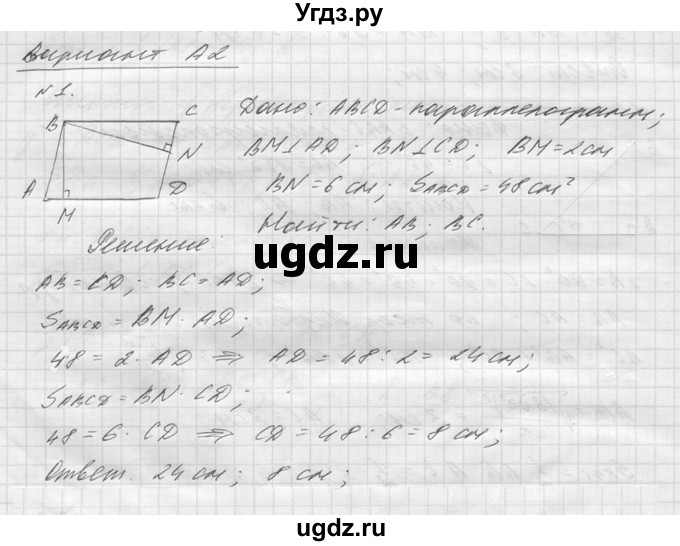 Угдз.ру
Вариант А2
№1.
Дано: ABCD - параллелограмм;
BM⊥AD; BN⊥CD; BM=2см
BN=6см; SABCD=48см²
Найти: AB; BC.
B
C
N
A
M
D
Решение:
AB=CD; BC=AD;
SABCD=BM·AD;
48=2·AD ⇒ AD=48:2=24см;
SABCD=BN·CD;
48=6·CD ⇒ CD=48:6=8см;
Ответ. 24см; 8см;
ugdz.ru
ugdz.ru